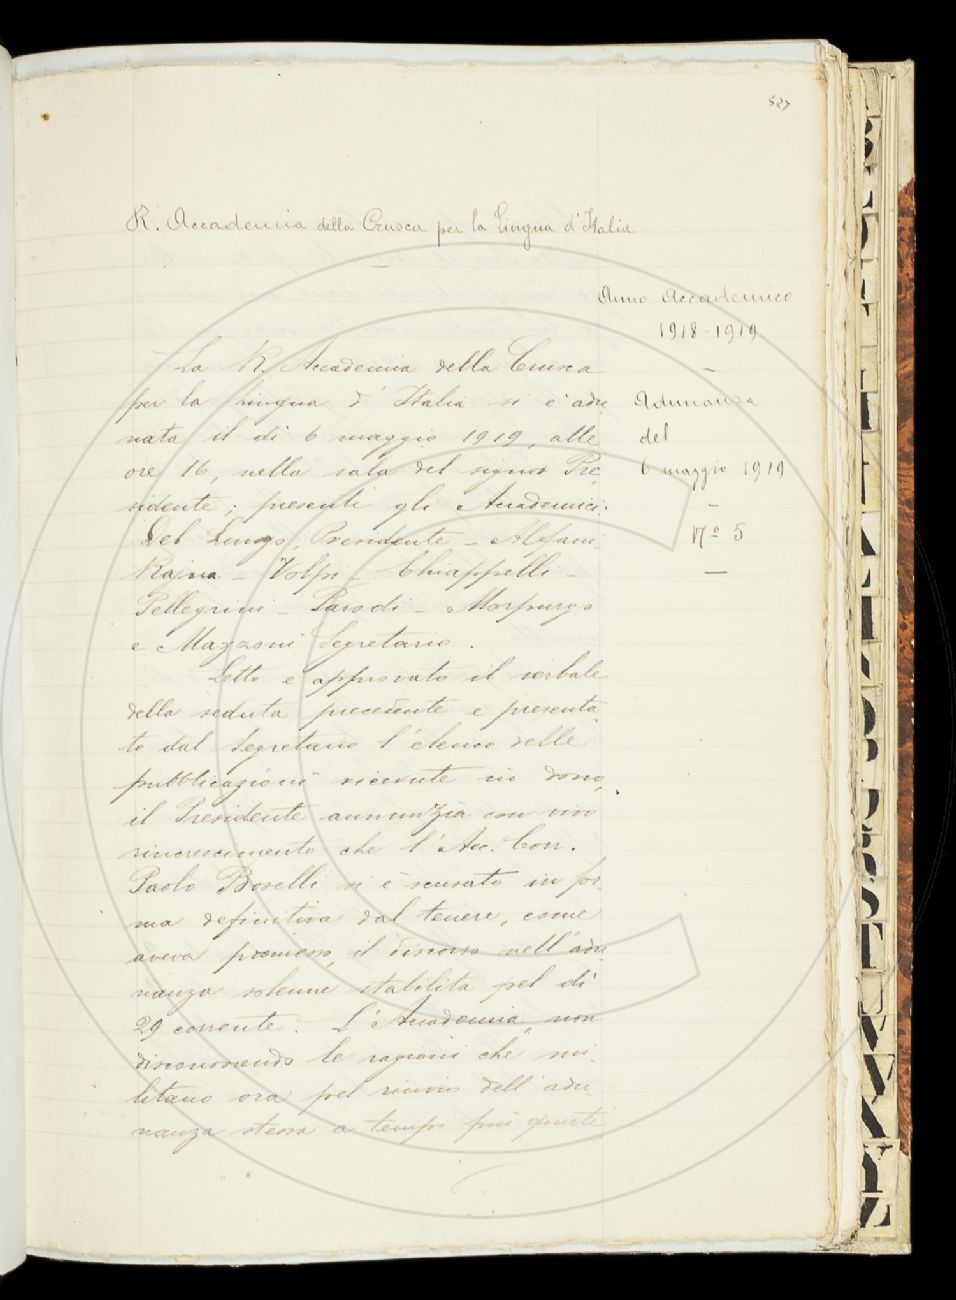 527
R. Accademia della Crusca per la Lingua d'Italia
Anno Accademico
1918-1919
Adunanza
del
6 maggio 1919
Nº 5
La R. Accademia della Crusca
per la Lingua d'Italia si è adu
nata il dì 6 maggio 1919, alle
ore 16, nella sala del signor Pre
sidente; presenti gli Accademici:
Del Lungo, Presidente - Alfani -
Rajna - Volpi - Chiappelli -
Pellegrini - Parodi - Morpurgo
e Mazzoni Segretario.
Letto e approvato il verbale
della seduta precedente e presenta
to dal Segretario l'elenco delle
pubblicazioni ricevute in dono,
il Presidente annunzia con vivo
rincrescimento che l'Acc. Corr.
Paolo Boselli si è scusato in for-
ma definitiva dal tenere, come
aveva promesso, il discorso nell'adu-
nanza solenne stabilita pel dì
29 corrente. L'Accademia, non
disconoscendo le ragioni che mi-
litano ora pel rinvio dell'adu-
nanza stessa a tempi più quieti
B
C
D
E
F
I
L
M
N
O
P
Q
R
S
T
U
V
W
X
Y
Z